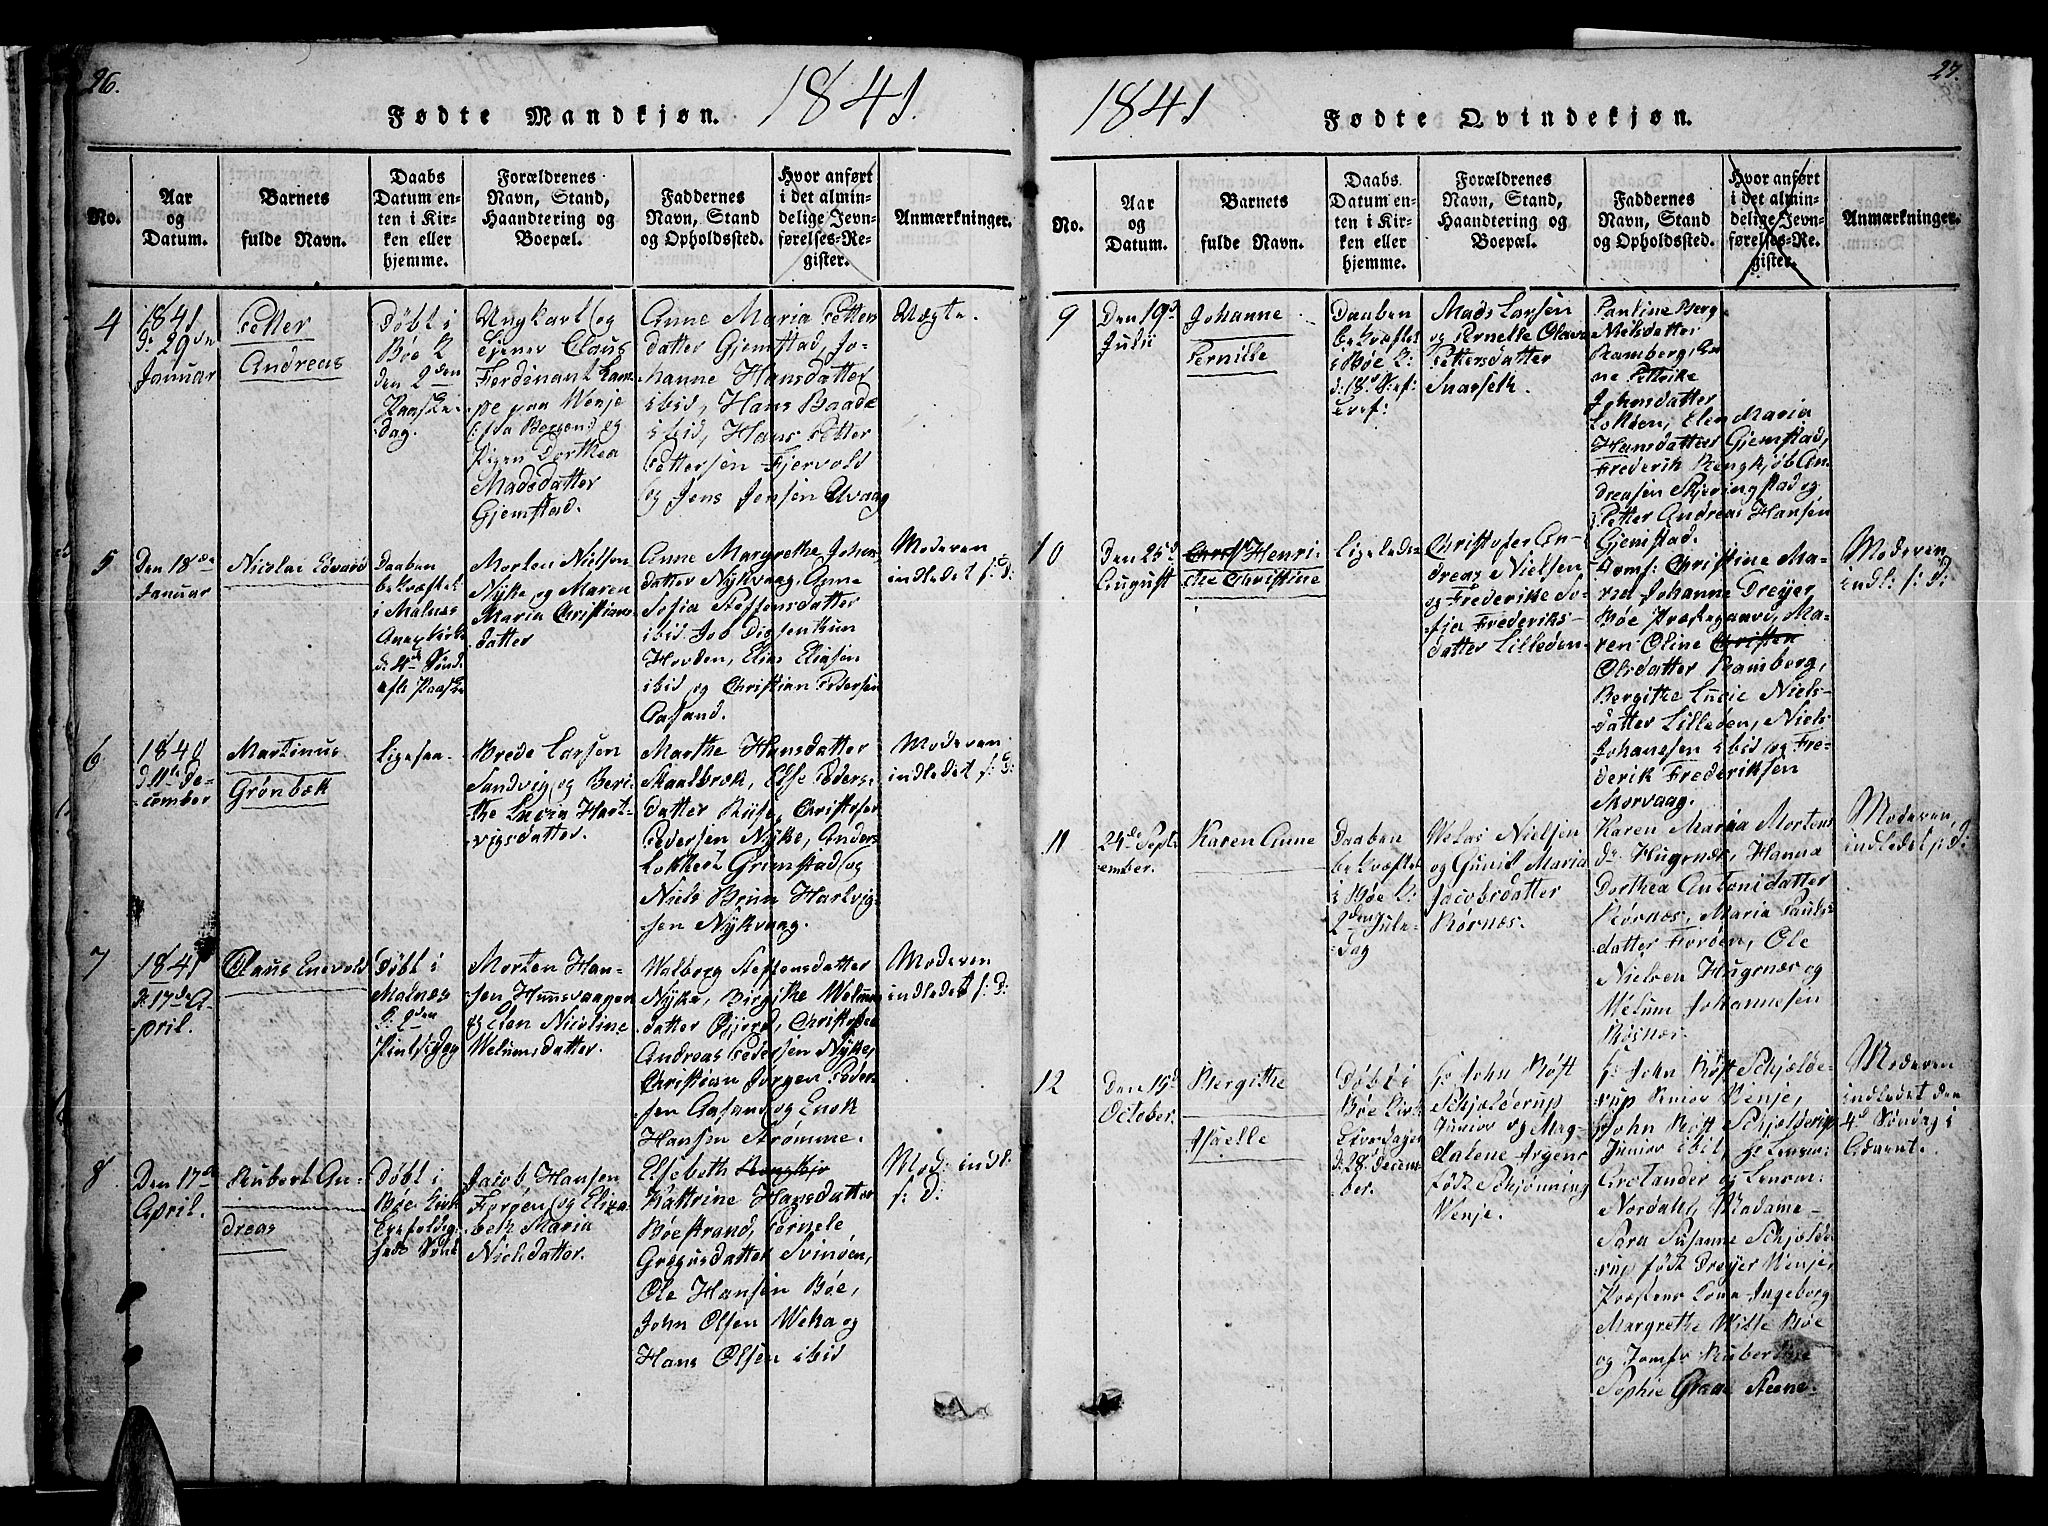 26.
Fødte Mandkjøn.
1841.
No.
Aar
og
Datum.
Barnets
fulde Navn.
Daabs
Datum en-
ten i Kir-
ken eller
hjemme.
Forældrenes
Navn, Stand,
Haandtering og
Boepæl.
Faddernes
Navn, Stand
og Opholdssted.
Hvor anført
i det almin-
delige Jevn-
førelses-Re-
gister.
Anmærkninger.
4
1841
d: 29de
Januar
Petter
Andreas
Døbt i
Bøe K
den 2den
Paaske-
dag.
Ungkarl og
tjener Claus
Ferdinant Lam-
pe paa Wenje
fra Bergen og
Pigen Dorthea
Madsdatter
Gjemstad.
Anne Maria Petters
datter Gjemstad, Jo-
hanne Hansdatter
ibid, Hans Baade
ibid, Hans Petter
Pettersen Fjervold
og Jens Jensen Uvaag
Uægte.
5
Den 18de
Januar
Nicolai Edvard
Daaben
bekræftet
i Malnes
Anex Kirke
d: 4de Sønd.
eft. Paaske
Morten Nielsen
Nyke og Maren
Maria Christians-
datter
Anne Margrethe Johan-
datter Nykvaag, Anne
Sofia Steffensdatter
ibid, Job
Hovden, Elias Eliasen
ibid og Christian Pedersen
Aasand.
Moderen
indledet s: D:
6
1840
d 11te De-
cember
Martinus
Grønbæk
Ligesaa.
Brede Larsen
Sandvig og Beri-
the Lucia Hart-
vigsdatter.
Marthe Hansdatter
Skaalbræk, Else Peders-
datter Ryse, Christofer
Pedersen Nyke, Anders
Lokkert Grimstad og
Niels Brun Hartvig-
sen Nykvaag.
Moderen
indledet s: D:
7
1841
d: 17de A-
pril.
Claus Enevold
Døbt i
Malnes
K: 2den
Pintsedag
Morten Han-
sen Hunsvaagen
og Elen Nicoline
Welumsdatter.
Walborg Steffensdatter
Nyke, Birgithe Welums
datter, Christofer
Andreas Pedersen Nyke,
Christian Jørgen Peder-
sen Aasand og Enok
Hansen Strømme.
Moderen
indledet s: D:
8
Den 17de
April.
Rubert An-
dreas
Døbt i
Bøe Kirk
Jacob Hansen
Forøen og Eliza-
beth Maria
Nielsdatter.
Elsebeth
Kattrine Hansdatter
Bøestrand, Pernele
Gregusdatter Svinøen,
Ole Hansen Bøe,
John Olsen Weha og
Hans Olsen ibid
Mod: indl:
s: D:
27.
1841
Fødte Qvindekjøn.
No.
Aar
og
Datum.
Barnets
fulde Navn.
Daabs
Datum en-
ten i Kir-
ken eller
hjemme.
Forældrenes
Navn, Stand,
Haandtering og
Boepæl.
Faddernes
Navn, Stand
og Opholdssted.
Hvor anført
i det almin-
delige Jevn-
førelses-Re-
gister.
Anmærkninger.
9
Den 19d
Julii
Johanne
Pernille
Daaben
bekræftet
i Bøe K:
d: 18d S: ef:
Tref:
Mads Larsen
og Pernelle Olava
Pettersdatter
Snarset.
Pauline Berg
Nielsdatter
Ramberg,
Johnsdatter
Elen Maria
Hansdatter Gjemstad,
Frederik Rengkjøb An-
dreasen Skjeringstad og
Petter Andreas Hansen
Gjemstad.
10
Den 25d
August
Henri-
che Christine
Ligeledes
Christofer An-
dreas Nielsen
og Frederike So-
fie Frederiks-
datter Lilleden
Jomf: Christine Ma-
ria Johanne Dreyer
Bøe Præstegaard, Ma-
ren Oline Christen
Olsdatter Ramberg,
Bergithe Lucie Niels-
datter Lilleden, Niels
Johansen ibid og Fre-
derik Frederiksen
Skorvaag.
Moderen
indl: s: D:
11
24de Sept-
ember.
Karen Anne
Daaben
bekræftet
i Bøe K:
2den Jule-
dag
Welas Nielsen
og Gunil Maria
Jacobsdatter
Rørnæs.
Karen Maria Mortens
dr Hugenæs, Hanna
Dorthea Antonidatter
Rørnæs, Maria Pauls-
datter Forøen, Ole
Nielsen Hugenæs og
Welum Johannesen
Røsnæs.
Moderen
indledet s: D:
12
Den 19d
October.
Bergithe
Isaelle
Døbt i
Bøe Kirk
d: 28d Decem-
ber.
Hr John Røst
Schjolderup
Junior og Mag-
dalene Irgens
født Schjønning
Wenje.
Hr John Røst Schjolde-
rup Senior Wenje,
John Røst Schjolderup
Junior ibid, Hr Lensm:
Arctander og Lensm:
Nordahl, Madame
Sara Susanne Schjolde-
rup født Dreyer Wenje,
Præstens Kone Ingeborg
Margrethe Wille Bøe
og Jomfr Rubertine
Sophie Grane Steene.
Moderen
indledet den
4d Søndag i
Advent.